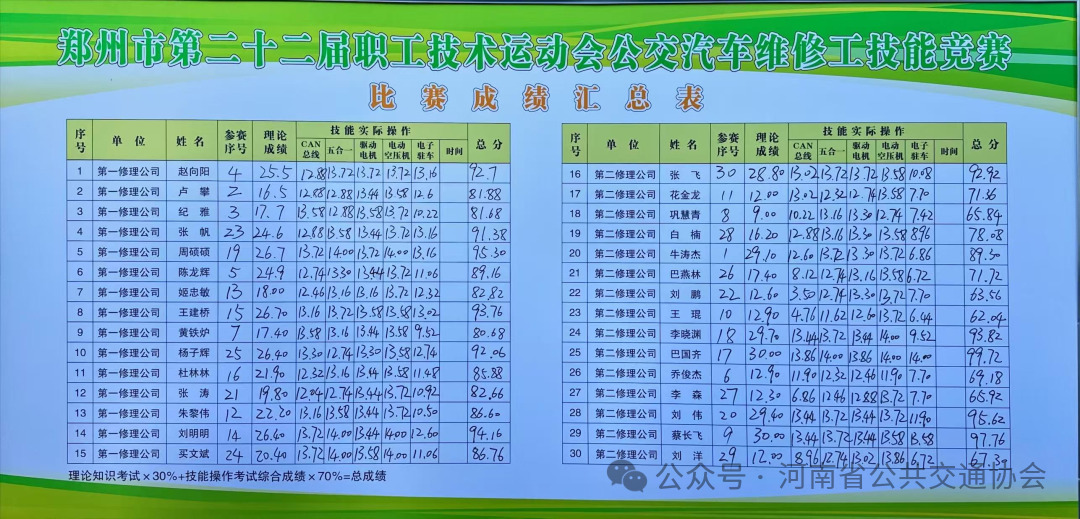 郑州市第二十二届职工技术运动会公交汽车维修工技能竞赛
比赛成绩汇总表
序号 单位 姓名 参赛序号 理论成绩 技能实际操作 总分
CAN总线 五合一 驱动电机 电动空压机 电子驻车 时间
1 第一修理公司 赵向阳 4 25.5 12.88 13.72 13.72 13.72 13.16 92.7
2 第一修理公司 卢攀 2 16.5 12.88 12.88 13.44 13.58 12.6 81.88
3 第一修理公司 纪雅 3 17.7 13.58 12.88 13.58 13.72 10.22 81.68
4 第一修理公司 张帆 23 24.6 12.88 13.58 13.44 13.72 13.16 91.38
5 第一修理公司 周硕硕 19 26.7 13.72 14.00 13.72 14.00 13.16 95.30
6 第一修理公司 陈龙辉 5 24.9 12.74 13.30 13.44 13.72 11.06 89.16
7 第一修理公司 姬忠敏 13 18.00 12.46 13.16 13.16 13.72 12.32 82.82
8 第一修理公司 王建桥 15 26.70 13.16 13.72 13.58 13.58 13.02 93.76
9 第一修理公司 黄铁炉 7 17.40 13.58 13.16 13.44 13.58 9.52 80.68
10 第一修理公司 杨子辉 25 26.40 13.30 12.74 13.30 13.58 12.74 92.06
11 第一修理公司 杜林林 16 21.90 12.32 13.16 13.44 13.58 11.48 85.88
12 第一修理公司 张涛 21 19.80 12.04 12.74 13.44 13.72 10.92 82.66
13 第一修理公司 朱黎伟 12 22.20 13.16 13.58 13.44 13.72 10.50 86.60
14 第一修理公司 刘明明 14 26.40 13.72 14.00 13.44 14.00 12.60 94.16
15 第一修理公司 买文斌 24 20.40 13.72 14.00 13.58 14.00 11.06 86.76
理论知识考试×30%+技能操作考试综合成绩×70%=总成绩
序号 单位 姓名 参赛序号 理论成绩 技能实际操作 总分
CAN总线 五合一 驱动电机 电动空压机 电子驻车 时间
16 第二修理公司 张飞 30 28.80 13.02 13.72 13.72 13.58 10.08 92.92
17 第二修理公司 花金龙 11 12.00 13.02 12.32 12.74 13.58 7.70 71.36
18 第二修理公司 巩慧青 8 9.00 10.22 13.16 13.30 12.74 7.42 65.84
19 第二修理公司 白楠 28 16.20 12.88 13.16 13.30 13.58 8.96 78.08
20 第二修理公司 牛涛杰 1 29.10 12.60 13.72 13.30 13.72 6.86 89.50
21 第二修理公司 巴燕林 26 17.40 8.12 12.74 13.16 13.58 6.72 71.72
22 第二修理公司 刘鹏 22 12.60 3.50 12.74 13.30 13.72 7.70 63.56
23 第二修理公司 王琨 10 12.90 4.76 11.62 12.60 13.72 6.44 62.04
24 第二修理公司 李晓渊 18 29.70 13.44 13.72 13.44 14.00 9.52 93.82
25 第二修理公司 巴国齐 17 30.00 13.86 14.00 13.86 14.00 14.00 99.72
26 第二修理公司 乔俊杰 6 12.90 11.90 12.32 12.46 11.90 7.70 69.18
27 第二修理公司 李森 27 12.30 6.86 12.46 12.88 13.72 7.70 65.92
28 第二修理公司 刘伟 20 29.40 13.44 13.72 13.44 13.72 11.90 95.62
29 第二修理公司 蔡长飞 9 30.00 13.44 13.72 13.44 13.58 13.58 97.76
30 第二修理公司 刘洋 29 12.00 8.96 12.74 13.02 13.86 6.72 67.30
公众号·河南省公共交通协会